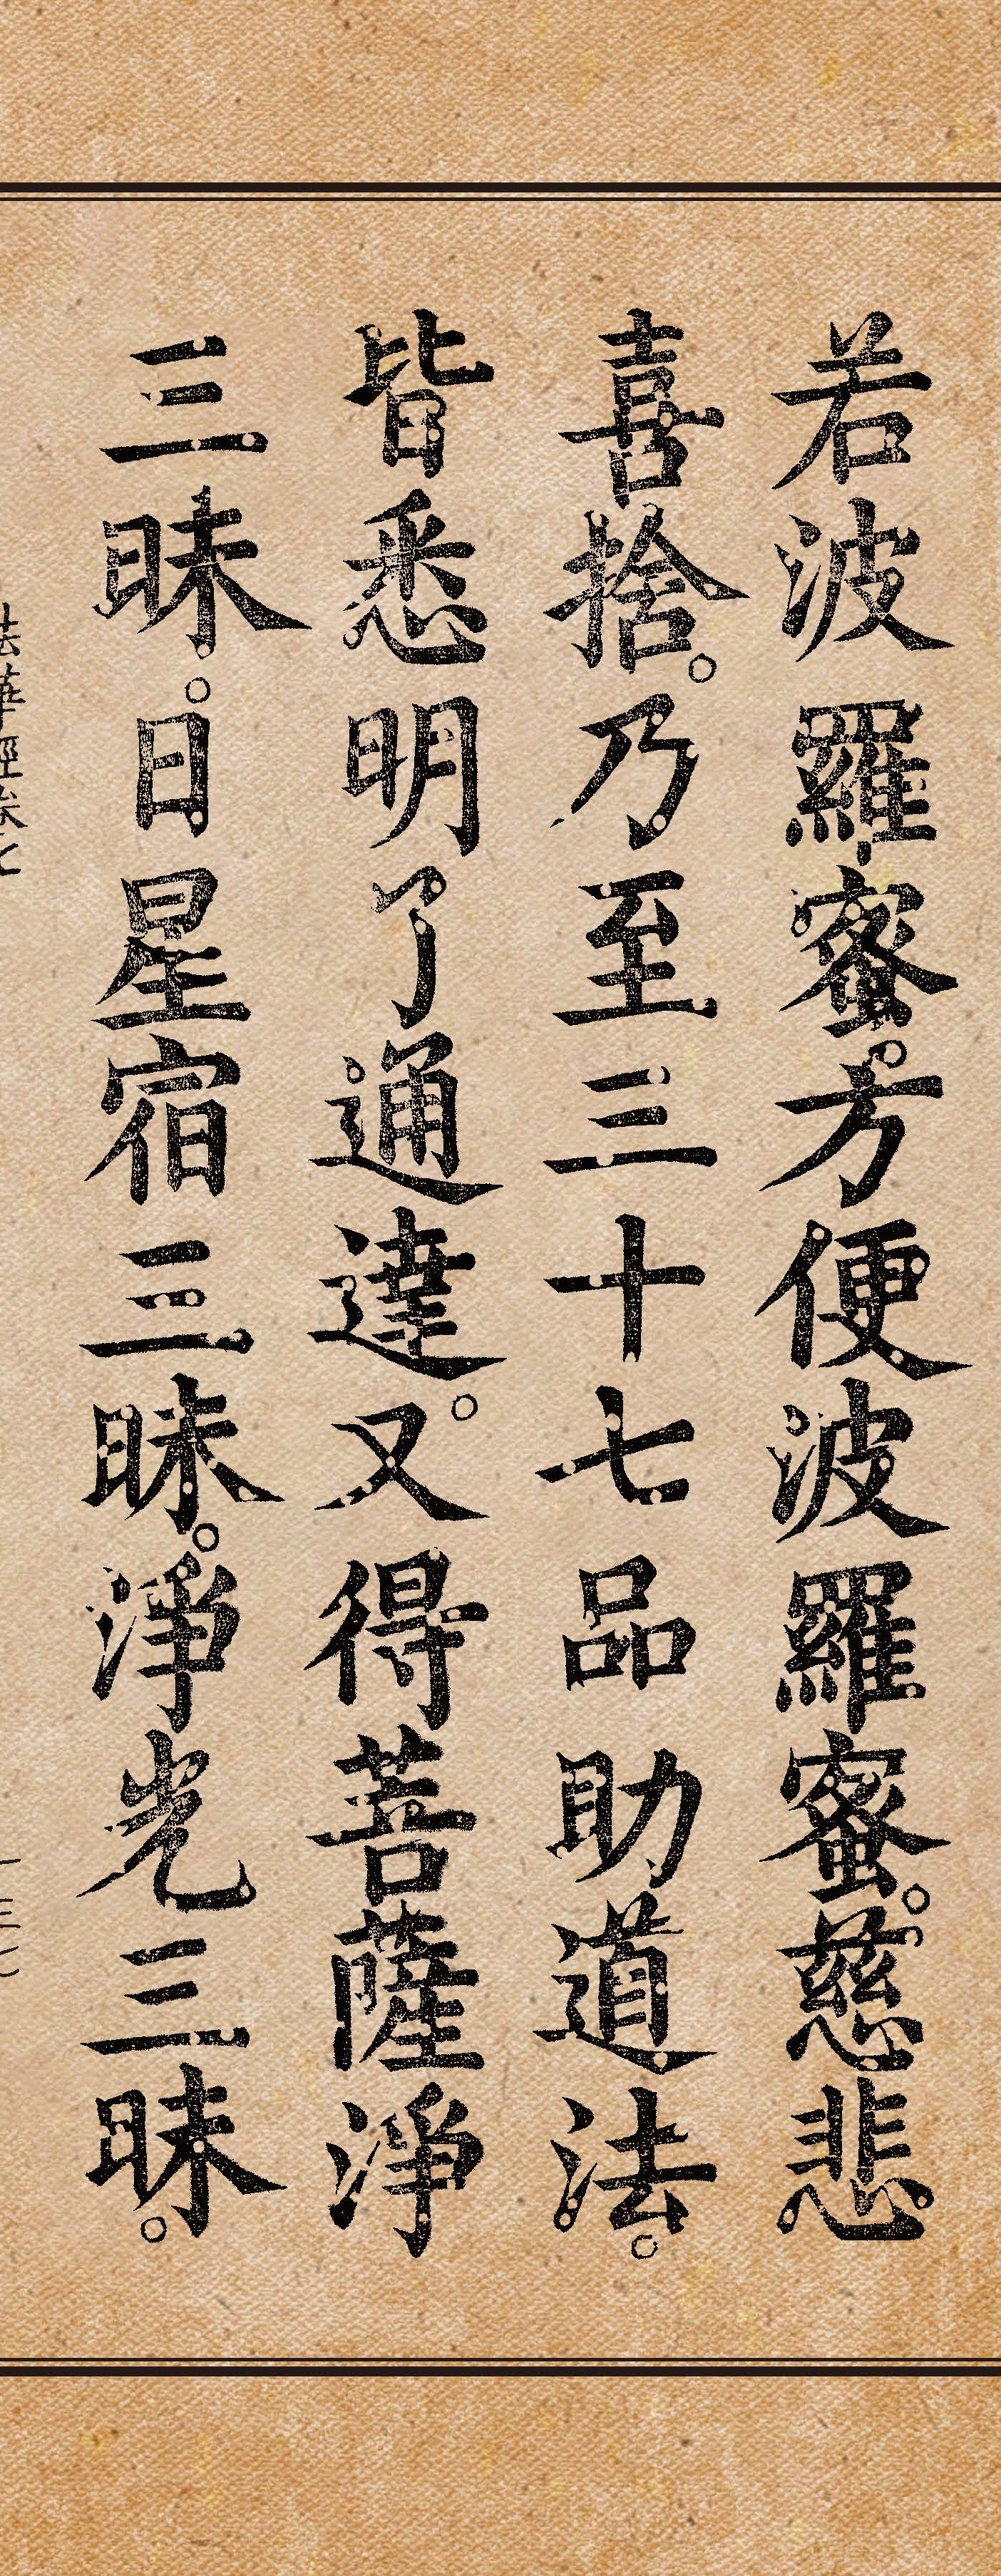 若波羅蜜。方便波羅蜜。慈悲
喜捨。乃至三十七品助道法。
皆悉明了通達。又得菩薩淨
三昧。日星宿三昧。淨光三昧。
法華經卷七